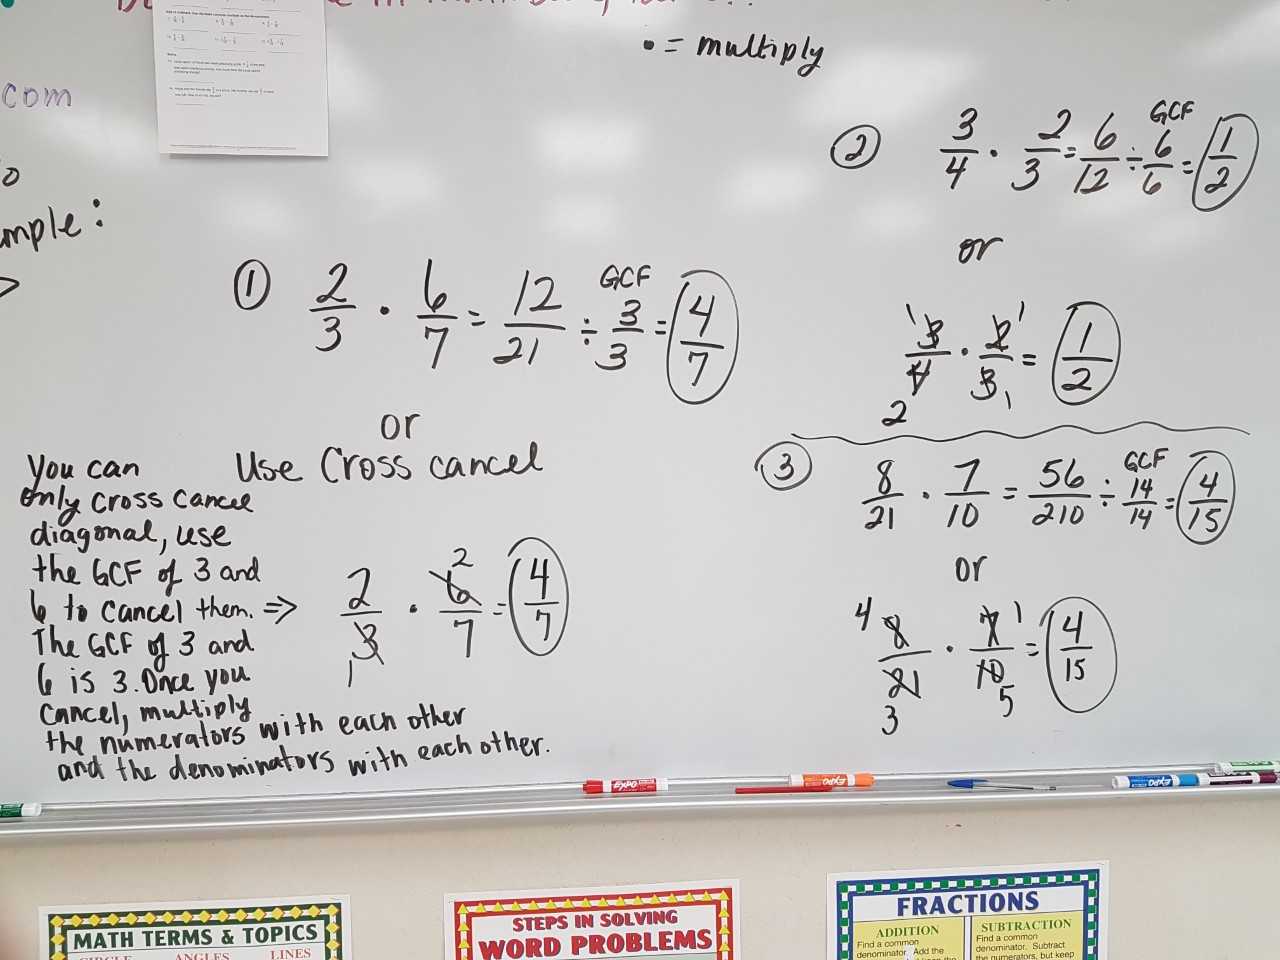 • = multiply
com
mple:
① 2/3 • 6/7 = 12/21 ÷ 3/3 = 4/7
GCF
or
Use Cross cancel
You can
only cross cancel
diagonal, use
the GCF of 3 and
6 to cancel them. ⇒
The GCF of 3 and
6 is 3. Once you
cancel, multiply
the numerators with each other
and the denominators with each other.
2/3 • 6/7 = 4/7
2
1
② 3/4 • 2/3 = 6/12 ÷ 6/6 = 1/2
GCF
or
1 3/4 • 2/3 1 = 1/2
2 1
③ 8/21 • 7/10 = 56/210 ÷ 14/14 = 4/15
GCF
or
4 8/21 • 7/10 1 = 4/15
3 5
EXPO
EXPO
EXPO
MATH TERMS & TOPICS
CIRCLE ANGLES LINES
STEPS IN SOLVING
WORD PROBLEMS
FRACTIONS
ADDITION
Find a common
denominator. Add the
SUBTRACTION
Find a common
denominator. Subtract
the numerators, but keep